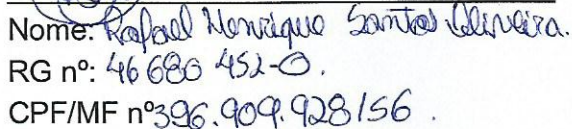 Nome: Rafael Henrique Santos Oliveira.
RG nº: 46 680 452-0.
CPF/MF nº 396.909.928/56.